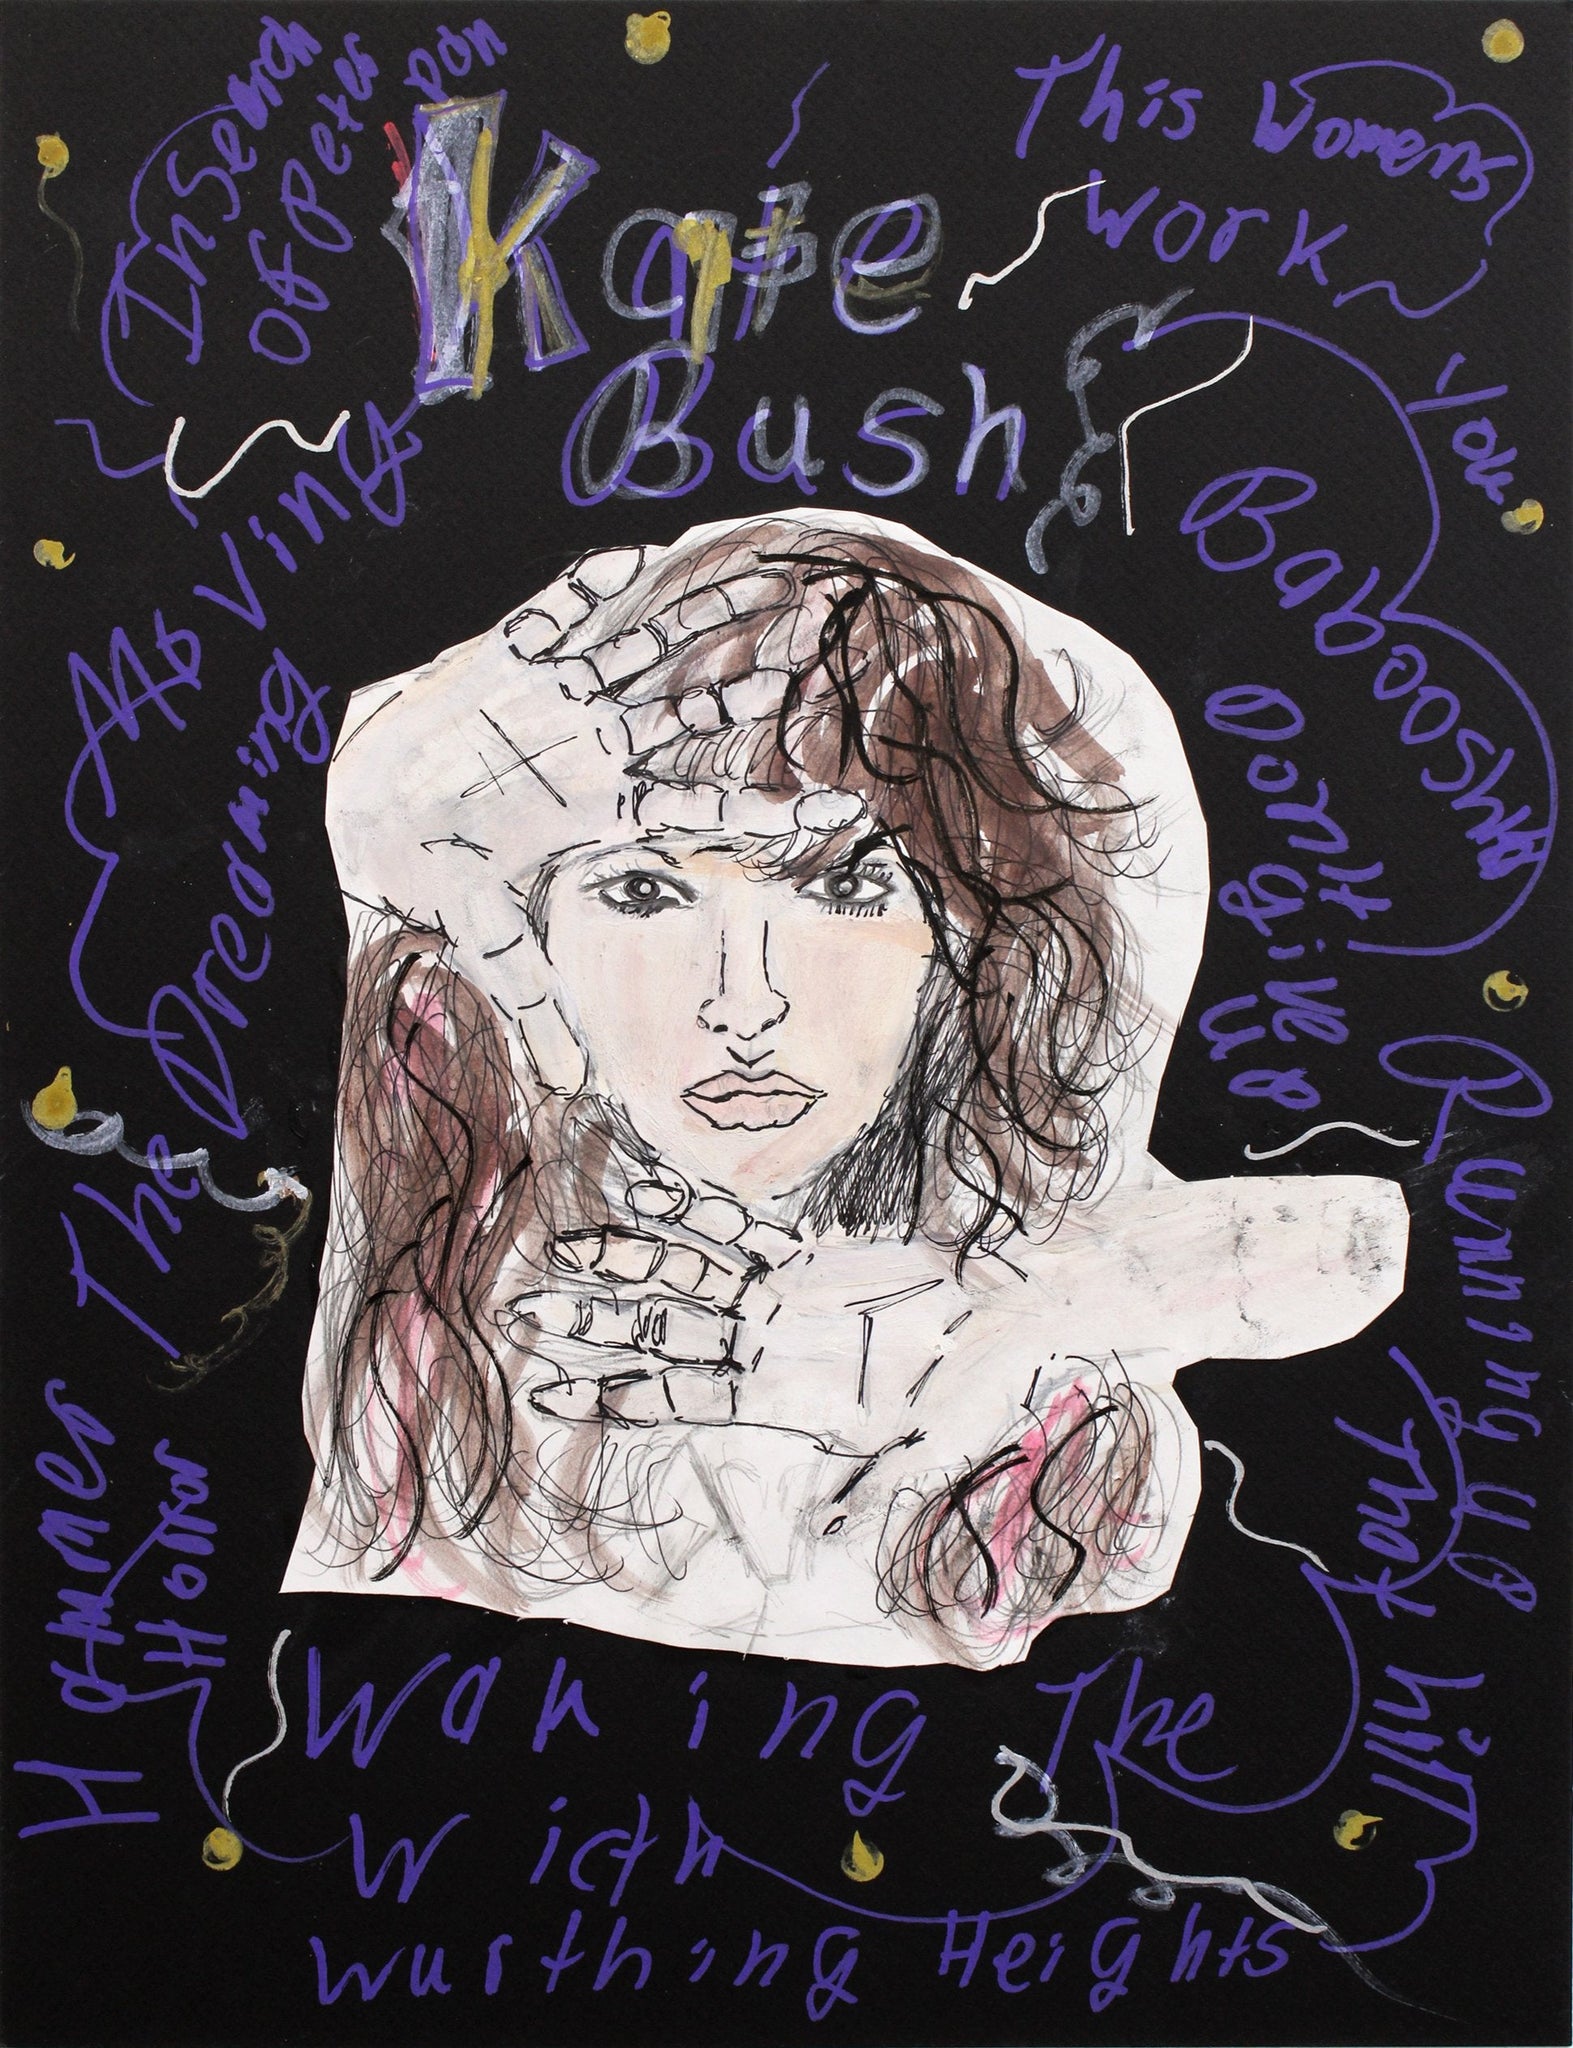 In Search
Of Peter
pan
Kate
Bush
This Womens
Work
Moving
The Dreaming
Babooshka
You
Don't
give
up
Running up
That
hill
Hamer
Horror
Waking The
Wicth
wurthing Heights